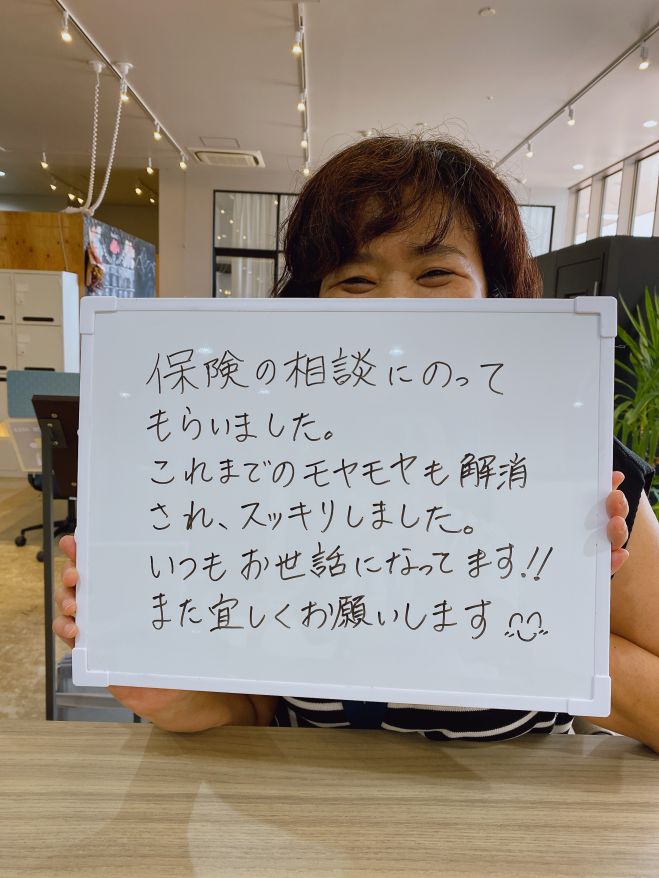 保険の相談にのって
もらいました。
これまでのモヤモヤも解消
され、スッキリしました。
いつもお世話になってます!!
また宜しくお願いします